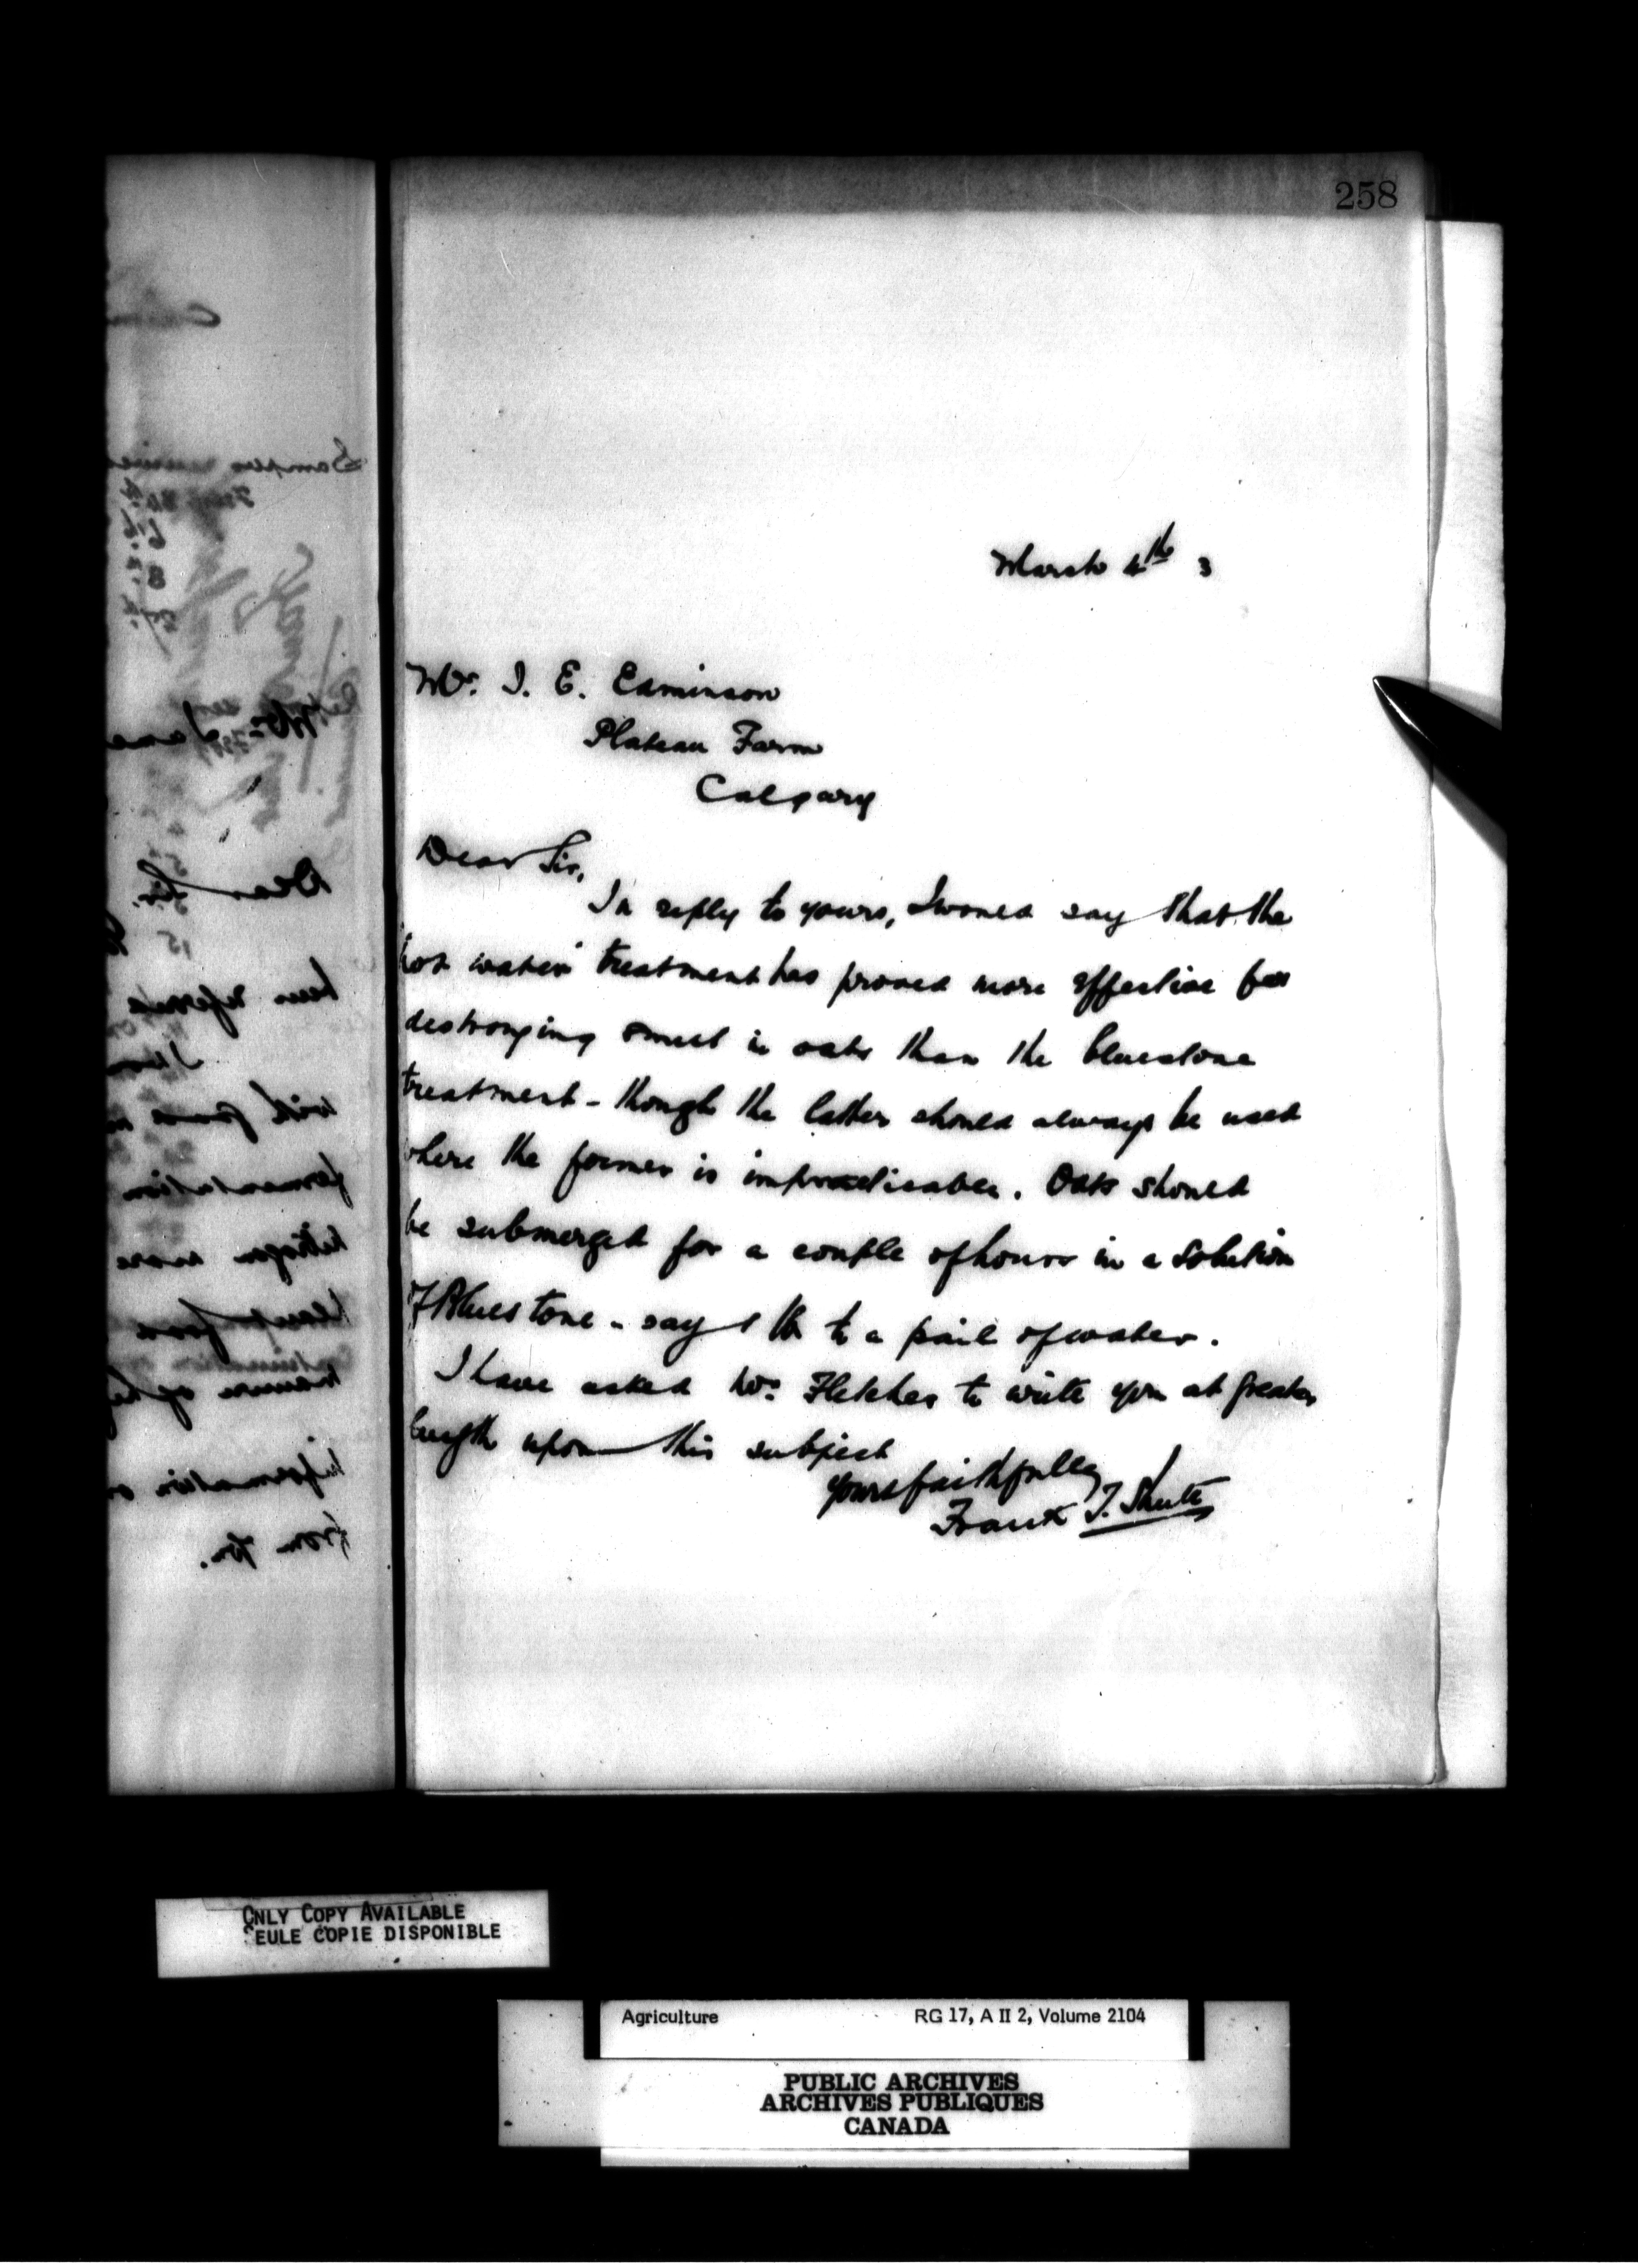 258
March 4th 3
Mr. I. E. Eaminson
Plateau Farm
Calgary
Dear Sir,
In reply to yours, I would say that the
hot water" treatment has proved more effective for
destroying smut in oats than the bluestone
treatment - though the latter should always be used
where the former is impracticable. Oats should
be submerged for a couple of hours in a solution
of Bluestone - say 1 lb to a pail of water.
I have asked Mr. Fletcher to write you at greater
length upon this subject
Yours faithfully
Frank T. Shutt
ONLY COPY AVAILABLE
SEULE COPIE DISPONIBLE
Agriculture RG 17, A II 2, Volume 2104
PUBLIC ARCHIVES
ARCHIVES PUBLIQUES
CANADA